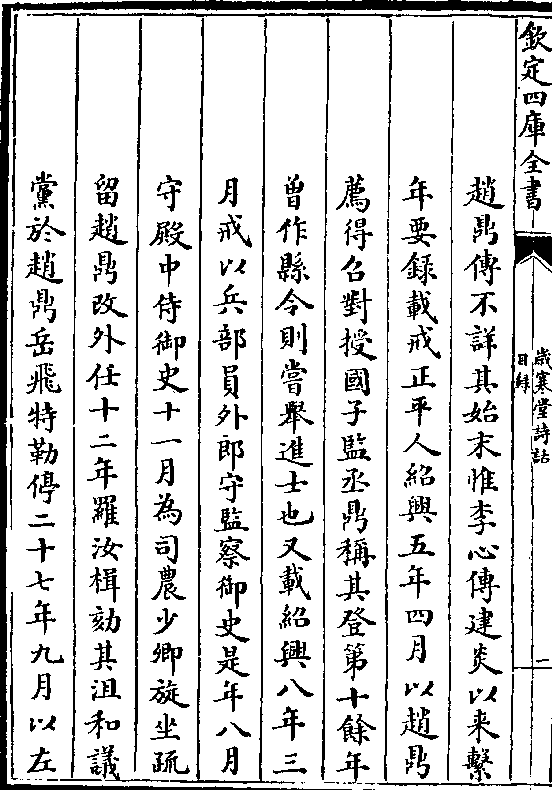 欽定四庫全書
歲寒堂詩話
目錄
二
趙鼎傳不詳其始末惟李心傳建炎以来繫
年要錄載戒正平人紹興五年四月以趙鼎
薦得召對授國子監丞鼎稱其登第十餘年
曽作縣令則嘗舉進士也又載紹興八年三
月戒以兵部員外郎守監察御史是年八月
守殿中侍御史十一月為司農少卿旋坐疏
留趙鼎改外任十二年羅汝楫劾其沮和議
黨於趙鼎岳飛特勒停二十七年九月以左